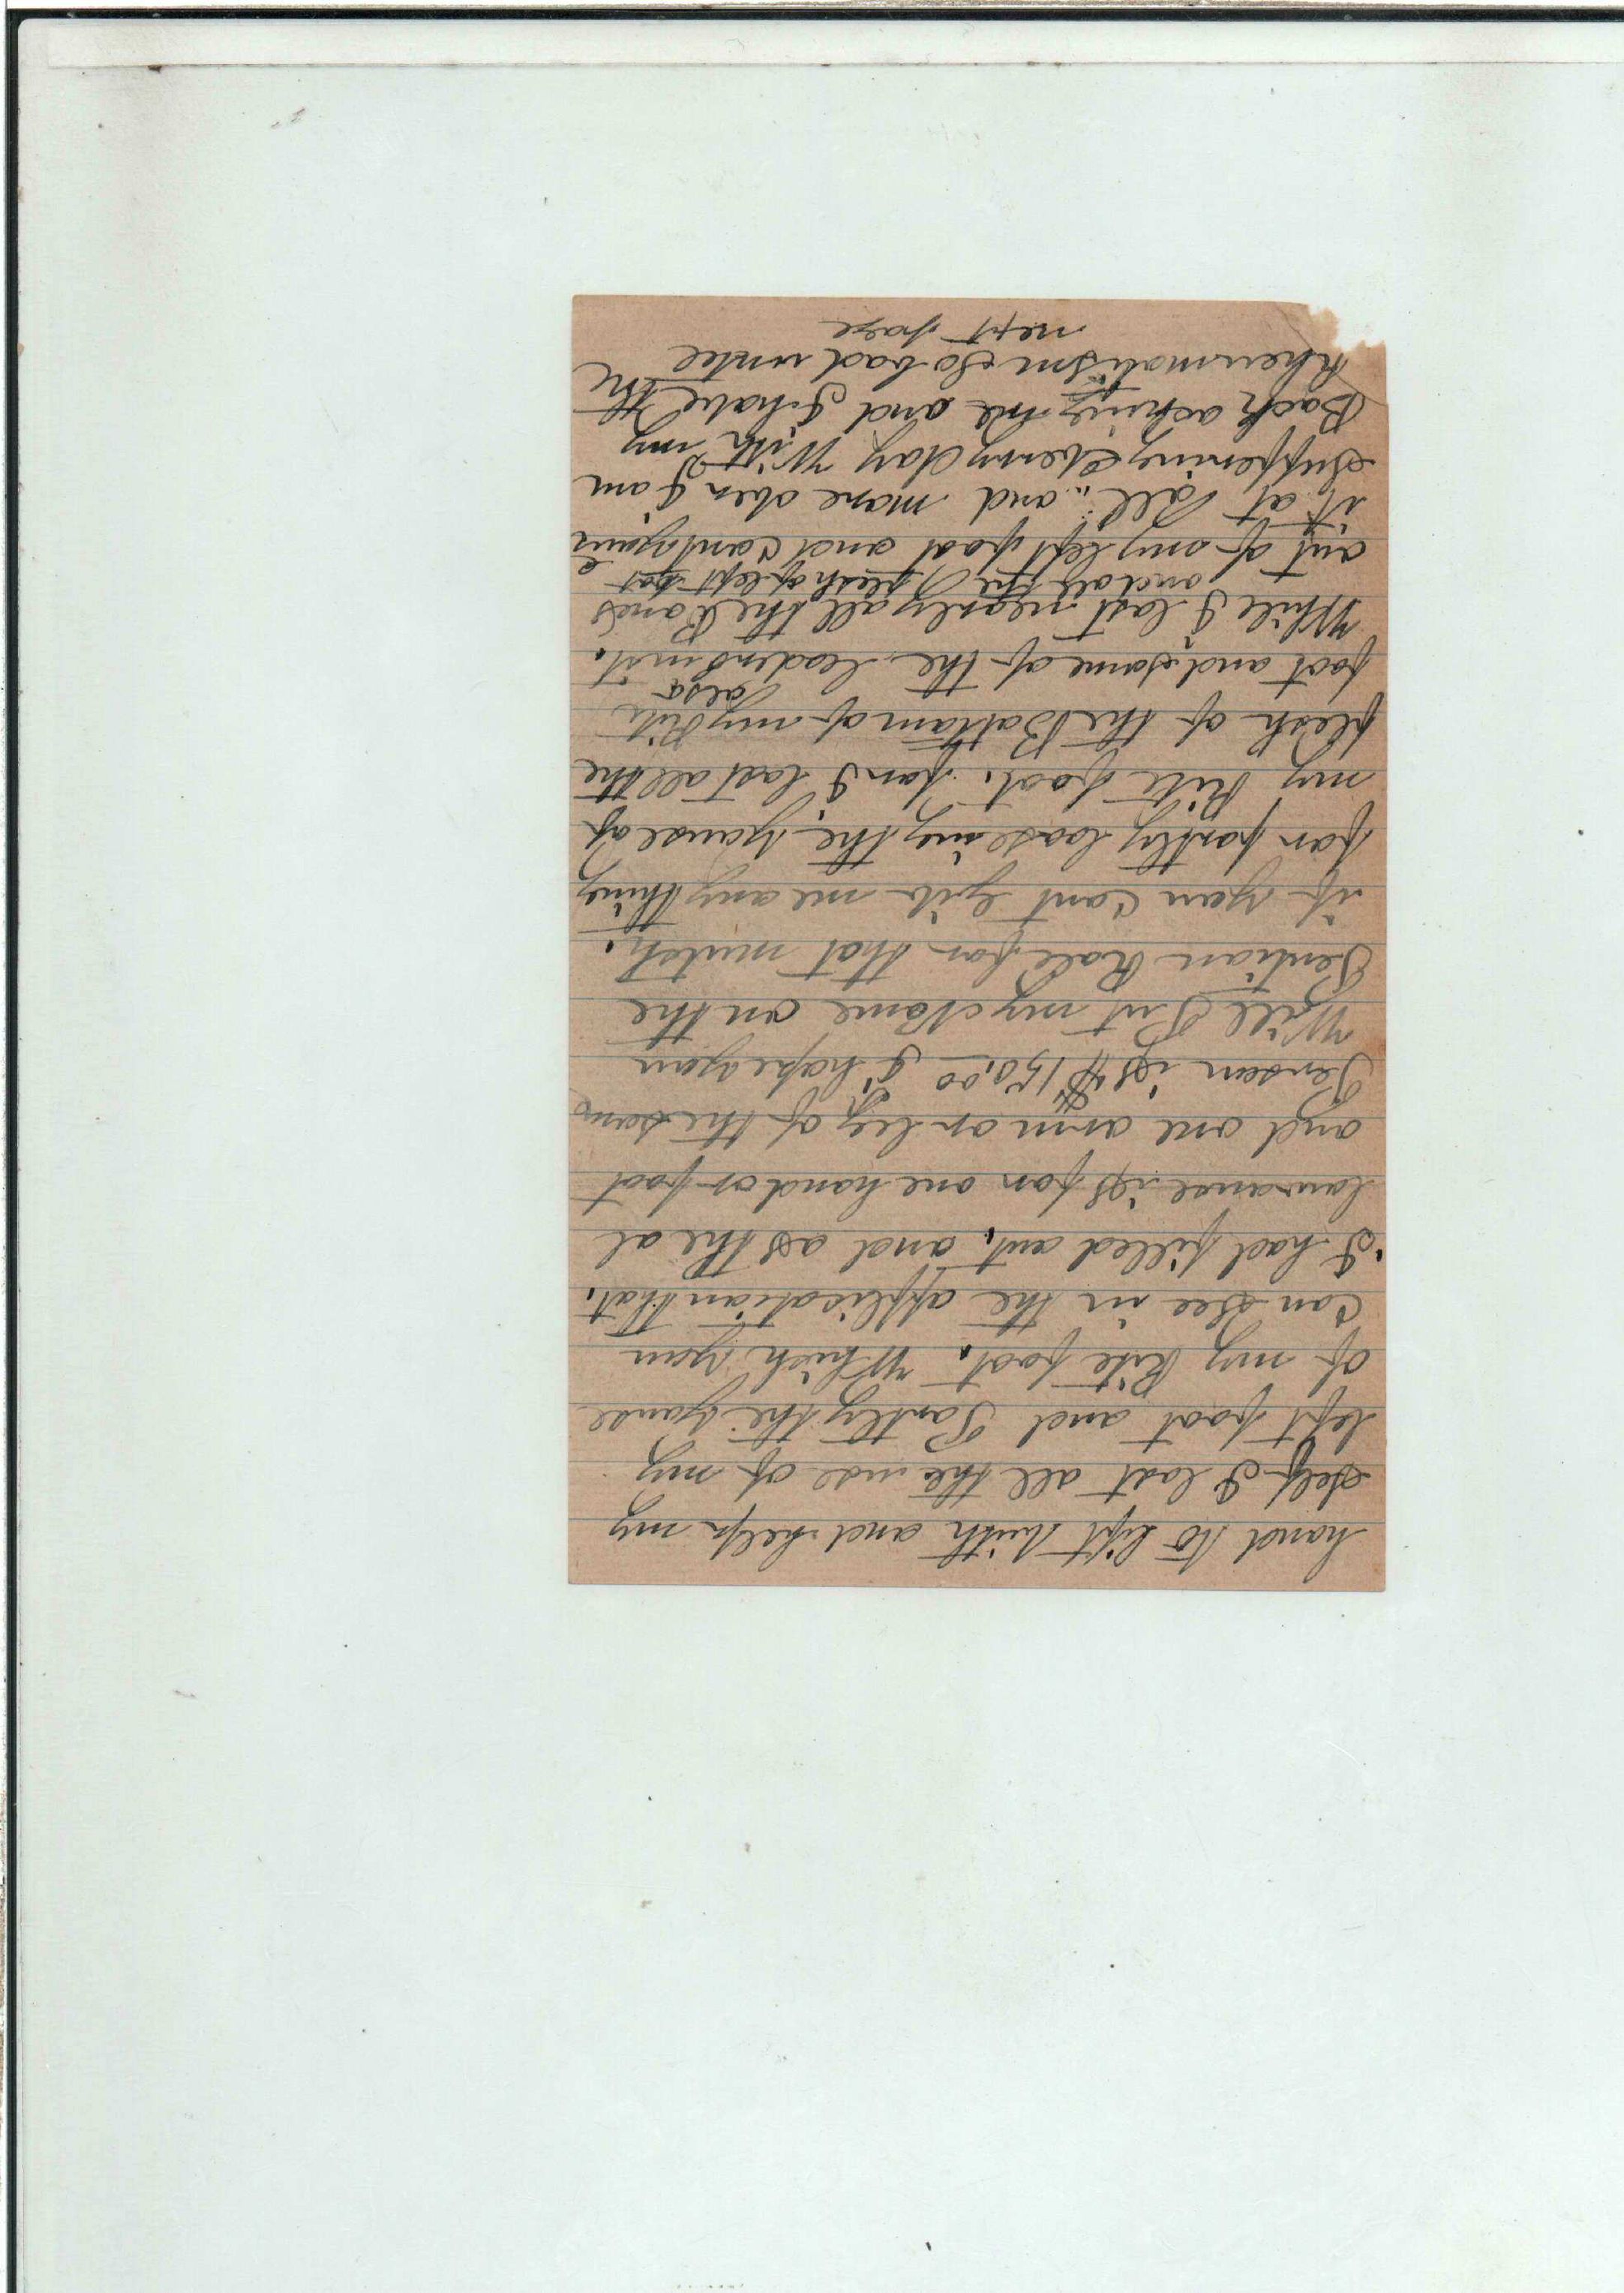 hand to lift with and help my
self I lost all the use of my
left foot and Partly the youse
of my Rite foot. Which you
can see in the application that.
I had filled out, and as the al
lowance iss for one hand or foot
and one arm or leg of the same
Person iss $150.00 I hope you
Will Put my Name on the
Pention Role for that mutch.
if you cant give me any thing
for partly looseing the youse of
my Rite foot. for I lost all the
flesh of the Bottom of my Rite
also
foot and some of the leaders in it.
While I lost nearly all the Bones
and all the flesh of left foot
out of my left foot and cant youse
it at all, and more over I am
suffering Every day With my
Back acking me and I have the
Rheumatism so bad untill
next page